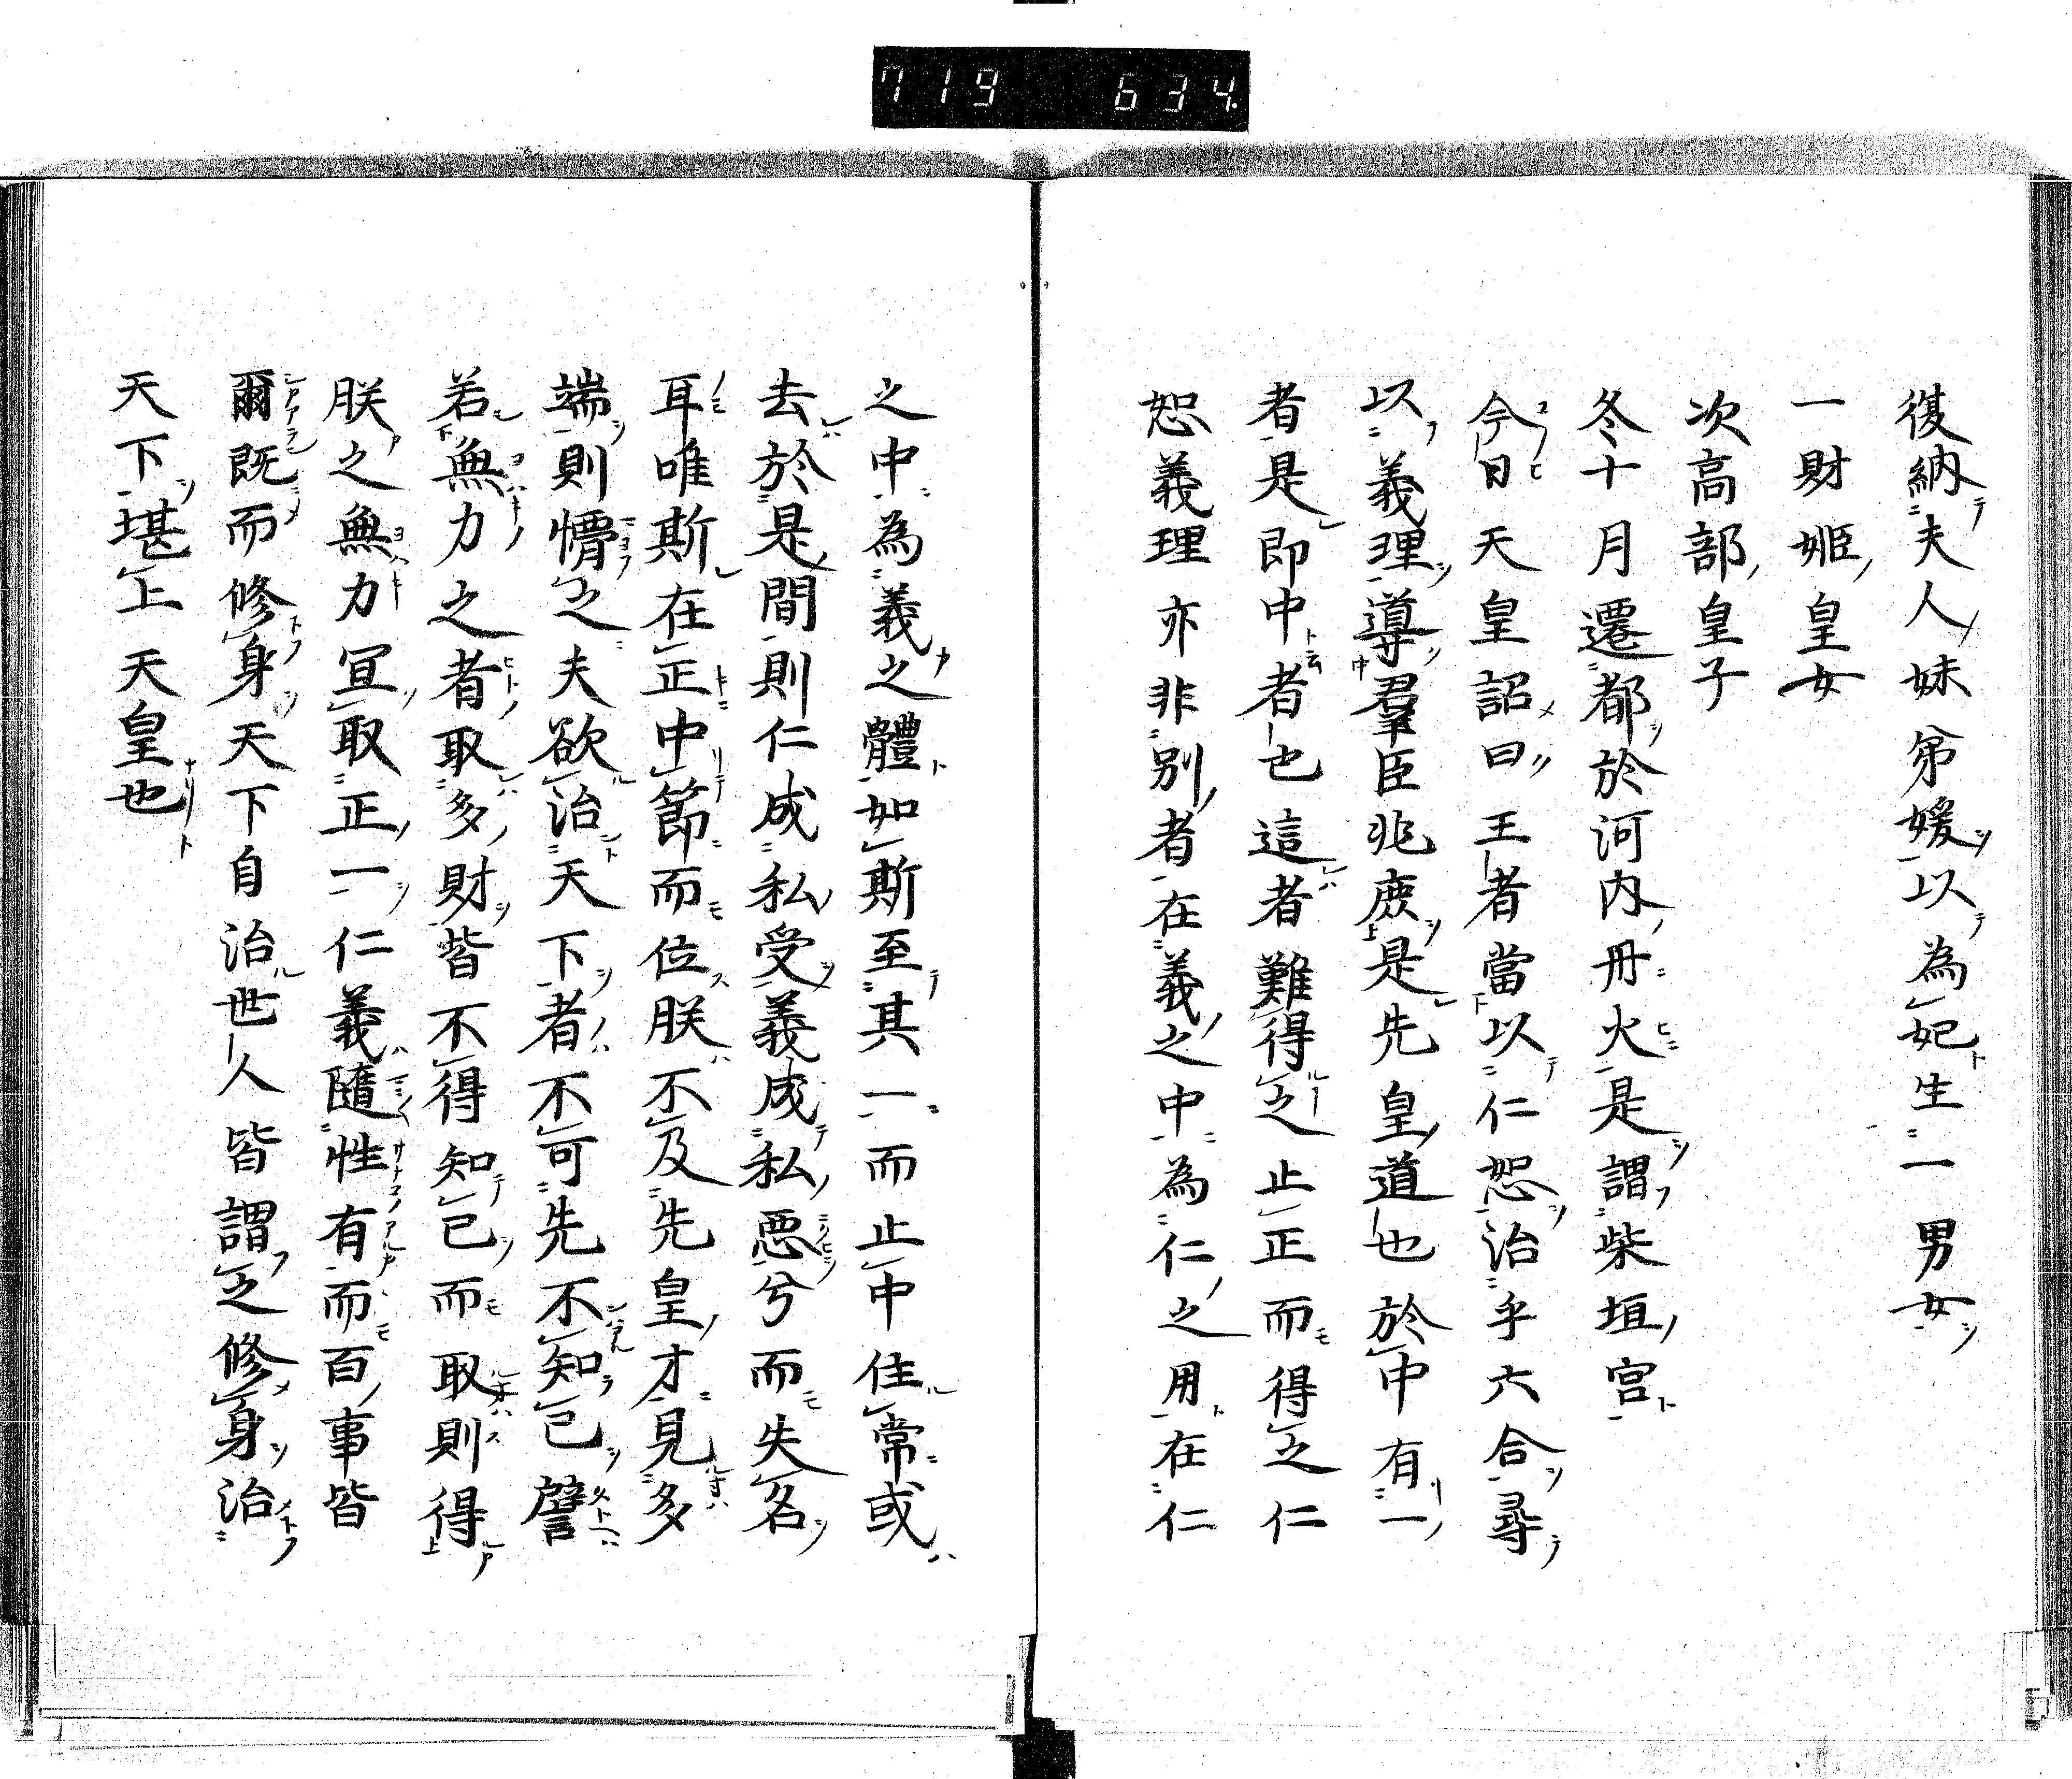 719 634
復納夫人妹弟媛以為妃生一男女
一財姫皇女
次高部皇子
冬十月遷都於河内丹火是謂柴垣宮
今日天皇詔曰王者當以仁恕治乎六合尋
以義理導羣臣兆庶是先皇道也於中有一
者是即中者也這者難得之止正而得之仁
恕義理亦非別者在義之中為仁之用在仁
之中為義之體如斯至其一而止中住常或
去於是間則仁成私受義成私惡兮而失名
耳唯斯在正中節而位朕不及先皇才見多
端則懵之夫欲治天下者不可先不知己譬
若無力之者取多財皆不得知己而取則得
朕之無力宣取正一仁義隨性有而百事皆
爾既而修身天下自治世人皆謂之修身治
天下堪上天皇也